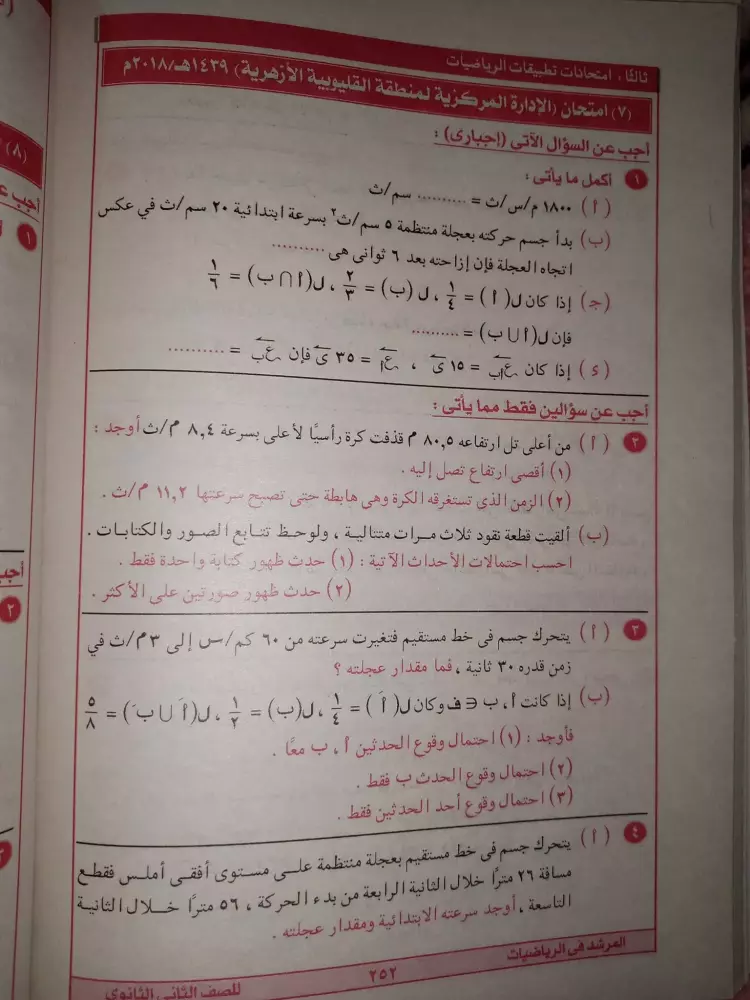 ثالثًا : امتحانات تطبيقات الرياضيات
(٧) امتحان (الإدارة المركزية لمنطقة القليوبية الأزهرية) ١٤٣٩هـ/٢٠١٨م
أجب عن السؤال الآتى (إجبارى) :
١ أكمل ما يأتى :
( أ ) ١٨٠٠ م/س/ث = .......... سم/ث
(ب) بدأ جسم حركته بعجلة منتظمة ٥ سم/ث٢ بسرعة ابتدائية ٢٠ سم/ث في عكس
اتجاه العجلة فإن إزاحته بعد ٦ ثوانى هى ..........
(جـ) إذا كان ل( أ ) = ١/٤ ، ل (ب) = ٢/٣ ، ل(أ ∩ ب) = ١/٦
فإن ل(أ ∪ ب) = ..........
( ء ) إذا كان ع أب = ١٥ ى ، ع أ = ٣٥ ى فإن ع ب = ..........
أجب عن سؤالين فقط مما يأتى :
٢ ( أ ) من أعلى تل ارتفاعه ٨٠,٥ م قذفت كرة رأسيًا لأعلى بسرعة ٨,٤ م/ث أوجد :
(١) أقصى ارتفاع تصل إليه .
(٢) الزمن الذى تستغرقه الكرة وهى هابطة حتى تصبح سرعتها ١١,٢ م/ث .
(ب) ألقيت قطعة نقود ثلاث مرات متتالية ، ولوحظ تتابع الصور والكتابات .
احسب احتمالات الأحداث الآتية : (١) حدث ظهور كتابة واحدة فقط .
(٢) حدث ظهور صورتين على الأكثر .
٣ ( أ ) يتحرك جسم فى خط مستقيم فتغيرت سرعته من ٦٠ كم/س إلى ٣ م/ث في
زمن قدره ٣٠ ثانية ، فما مقدار عجلته ؟
(ب) إذا كانت أ ، ب ∋ ف وكان ل( أَ ) = ١/٤ ، ل(ب) = ١/٢ ، ل(أَ ∪ بَ) = ٥/٨
فأوجد : (١) احتمال وقوع الحدثين أ ، ب معًا .
(٢) احتمال وقوع الحدث ب فقط .
(٣) احتمال وقوع أحد الحدثين فقط .
٤ ( أ ) يتحرك جسم فى خط مستقيم بعجلة منتظمة على مستوى أفقى أملس فقطع
مسافة ٢٦ مترًا خلال الثانية الرابعة من بدء الحركة ، ٥٦ مترًا خلال الثانية
التاسعة ، أوجد سرعته الابتدائية ومقدار عجلته .
المرشد فى الرياضيات
٢٥٢
للصف الثانى الثانوى